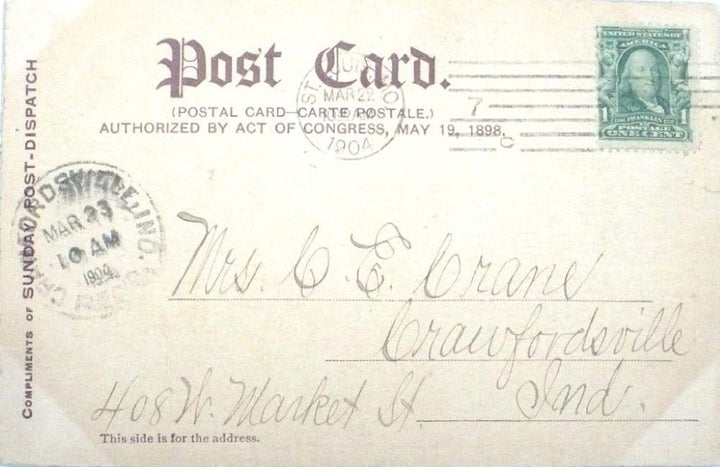 Post Card.
(POSTAL CARD—CARTE POSTALE.)
AUTHORIZED BY ACT OF CONGRESS, MAY 19, 1898.
UNITED STATES OF
AMERICA
FRANKLIN
1 POSTAGE 1
ONE CENT
ST. MO
MAR 22
1904
7
C
MAR 23
10 AM
1904
COMPLIMENTS OF SUNDAY POST-DISPATCH
Mrs. C. E. Crane
Crawfordsville
408 W. Market St. Ind.
This side is for the address.